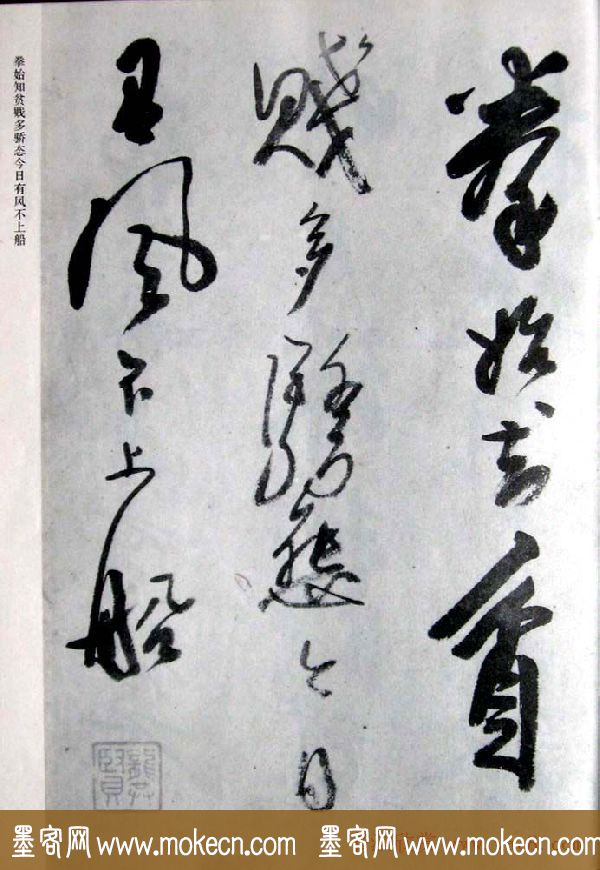 拳始知貧
賤多驕態今日
有風不上船
拳始知贫贱多骄态今日有风不上船
墨客网 www.mokecn.com 墨客网 www.mokecn.com